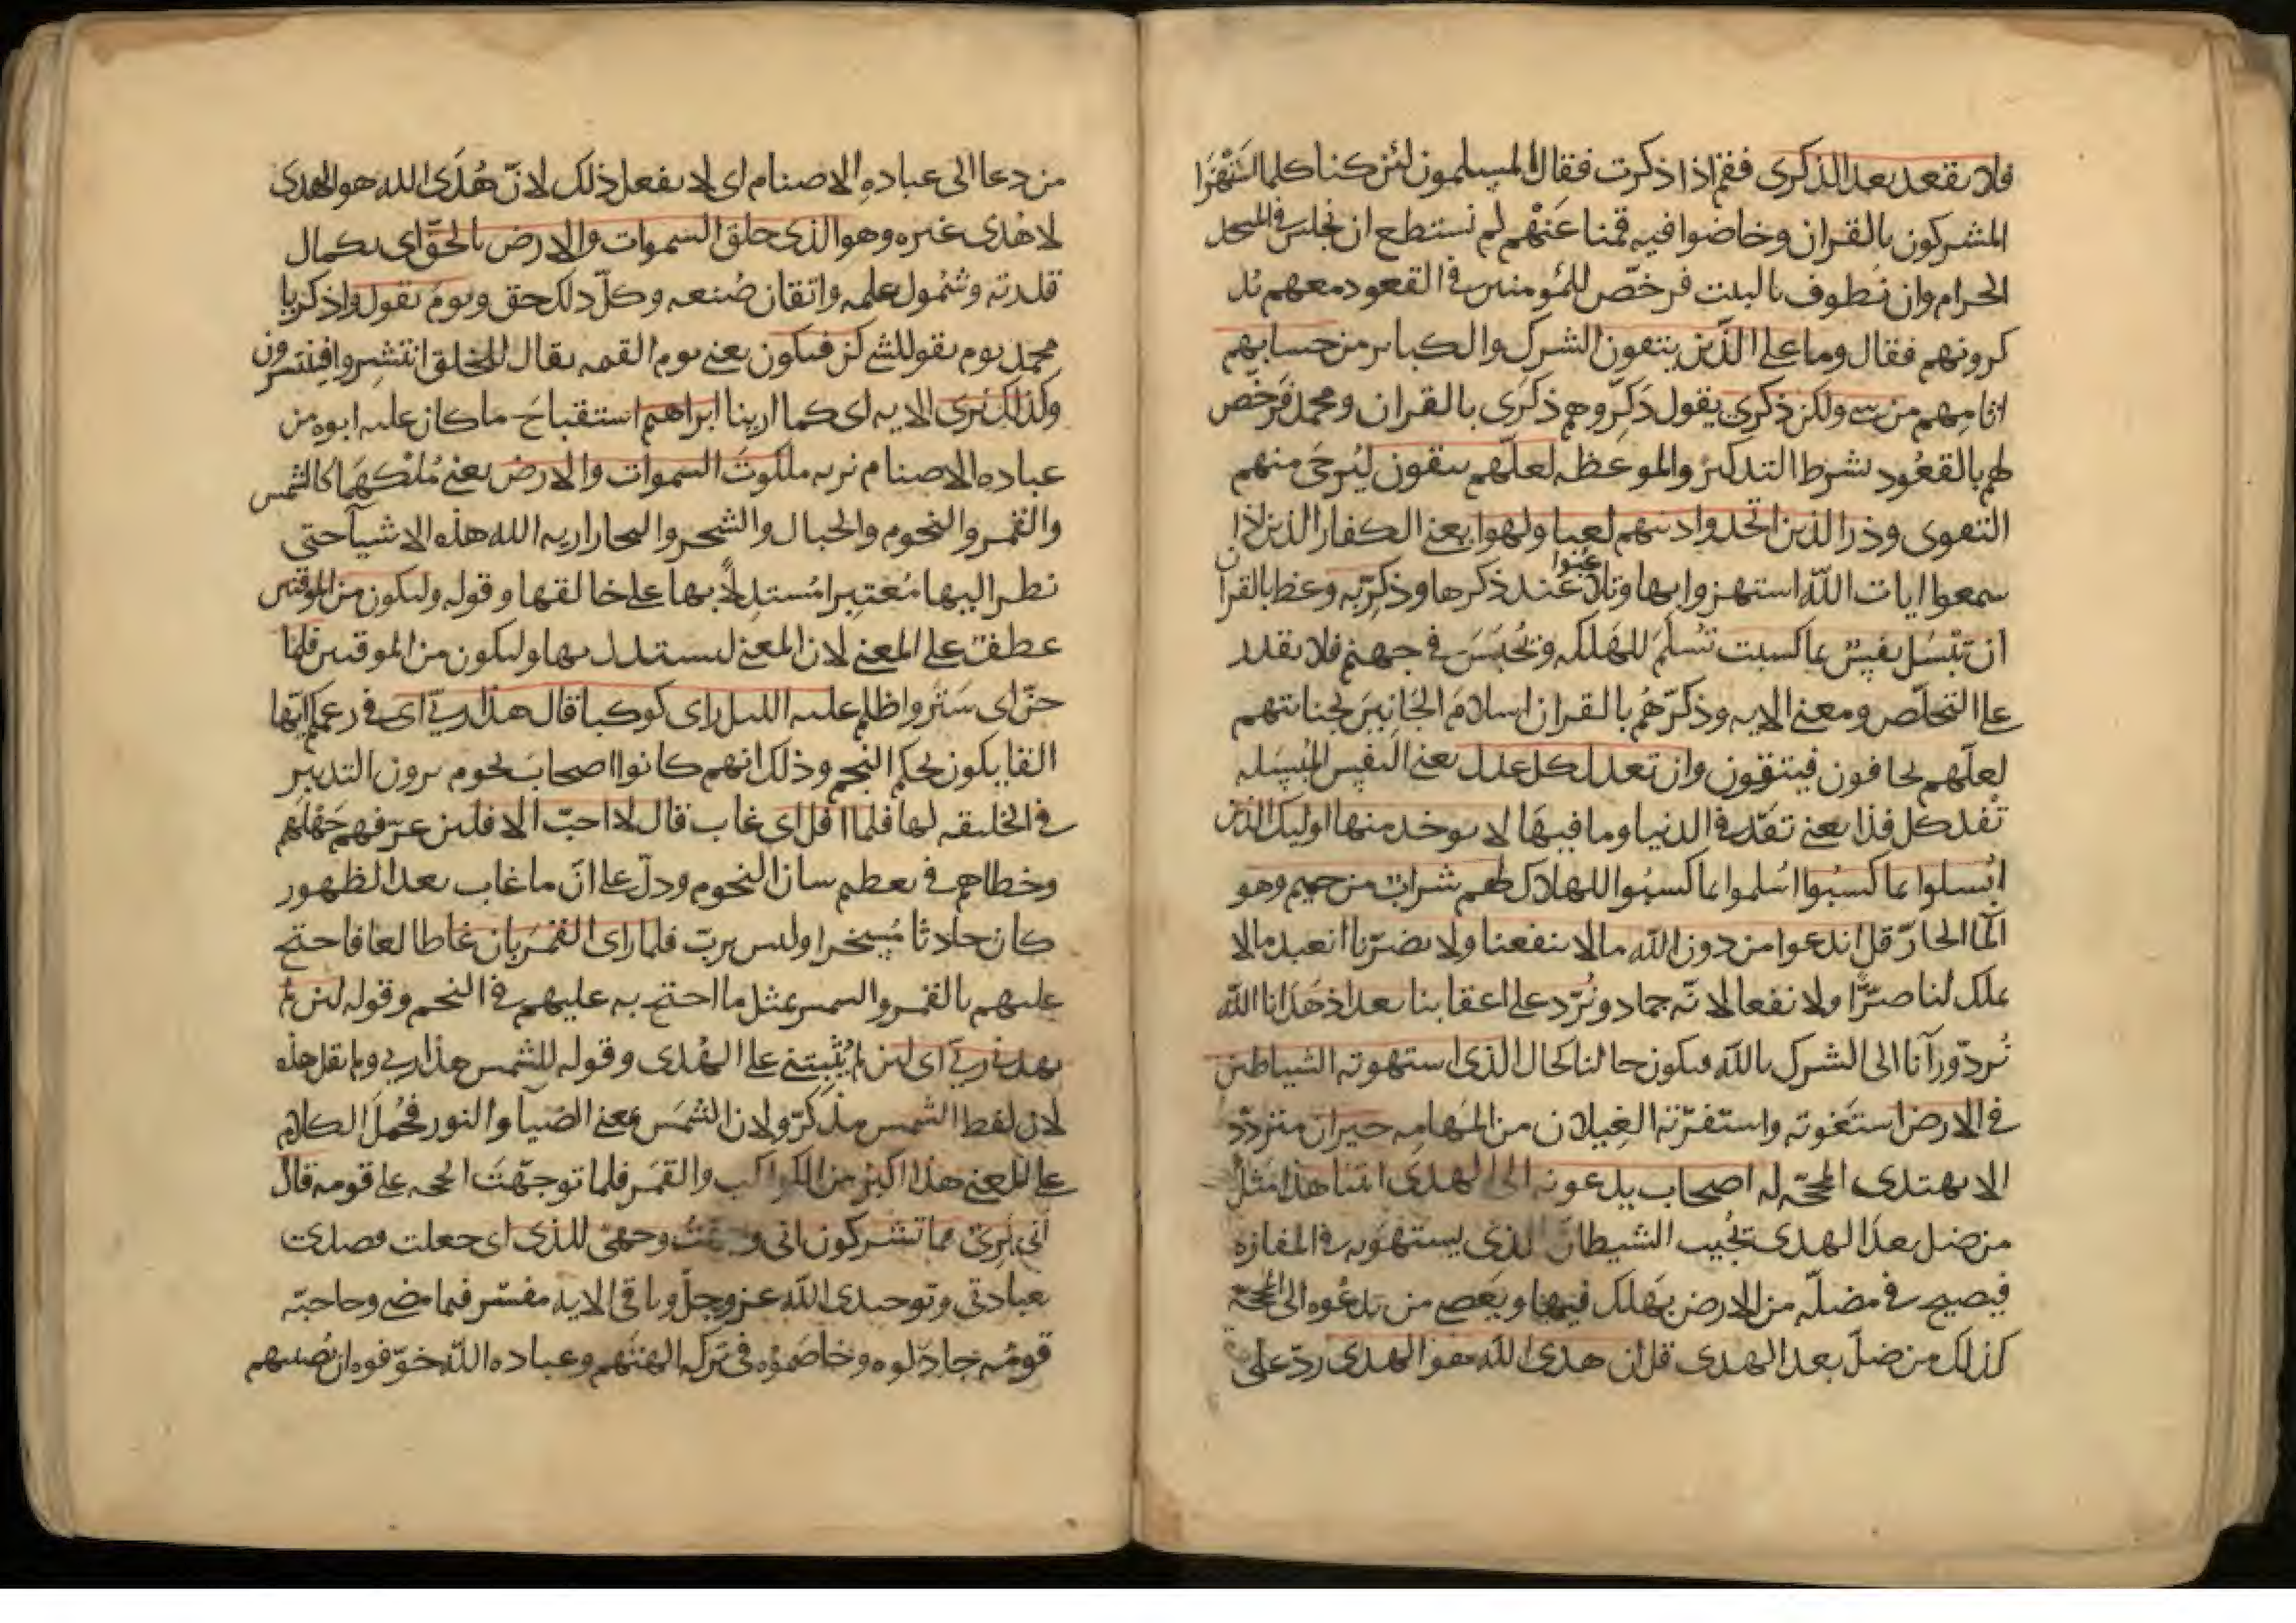 فلا تقعد بعد الذكرى فقم اذا ذكرت فقال المسلمون لئن كنا كلما استهزا
المشركون بالقران وخاضوا فيه قمنا عنهم لم نستطع ان نجلس في المسجد
الحرام وان نطوف بالبيت فرخص للمؤمنين في القعود معهم يذ
كرونهم فقال وما على الذين يتقون الشرك والكباير من حسابهم
اثامهم من شي ولكن ذكرى يقول ذكروهم ذكرى بالقران ومحمد فرخص
لهم بالقعود بشرط التذكير والموعظه لعلهم يتقون ليرجى منهم
التقوى وذر الذين اتخذوا دينهم لعبا ولهوا يعني الكفار الذين اذا
سمعوا ايات الله استهزوا بها وتلاعبوا عند ذكرها وذكر به وعظ بالقران
ان تبسل نفس بما كسبت تسلم للهلكه وتحبس في جهنم فلا تقدر
على التخلص ومعنى الايه وذكرهم بالقران اسلام الجانين بجناياتهم
لعلهم يخافون فيتقون وان تعدل كل عدل يعني النفس المبسله
تفد كل فدا يعني تفد في الدنيا وما فيها لا يوخذ منها اوليك الذين
ابسلوا بما كسبوا اسلموا بما كسبوا للهلاك لهم شراب من حميم وهو
الما الحار قل اندعوا من دون الله ما لا ينفعنا ولا يضرنا انعبد ما لا
يملك لنا ضرا ولا نفعا لانه جماد ونرد على اعقابنا بعد اذ هدانا الله
نرد ورآنا الى الشرك بالله فيكون حالنا كحال الذي استهوته الشياطين
في الارض استغوته واستفزته الغيلان من المهامه حيران متردد
الا يهتدى المحجه له اصحاب يدعونه الى الهدى ائتنا هذا مثل
من ضل بعد الهدى يجيب الشيطان الذي يستهويه في المفازه
فيصبح في مضله من الارض يهلك فيها ويعصي من يدعوه الى المحجه
كذلك من ضل بعد الهدى قل ان هدى الله هو الهدى رد على
من دعا الى عباده الاصنام اي لا نفعل ذلك لان هدى الله هو الهدى
لا هدى غيره وهو الذي خلق السموات والارض بالحق اي بكمال
قدرته وشمول علمه واتقان صنعه وكل ذلك حق ويوم يقول واذكر يا
محمد يوم يقول للشي كن فيكون يعني يوم القيمه يقال للخلق انتشروا فينتشرون
وكذلك نرى الايه اي كما ارينا ابراهيم استقباح ما كان عليه ابوه من
عباده الاصنام نريه ملكوت السموات والارض يعني ملكهما كالشمس
والقمر والنجوم والجبال والشجر والبحار اريه الله هذه الاشيآ حتى
نظر اليها معتبرا مستدلا بها على خالقها وقوله وليكون من الموقنين
عطف على المعنى لان المعنى ليستدل بها وليكون من الموقنين فلما
جن اي ستر واظلم عليه الليل راى كوكبا قال هذا ربي اي في زعمكم ايها
القايلون بحكم النجم وذلك انهم كانوا اصحاب نجوم يرون التدبير
في الخليقه لها فلما افل اي غاب قال لا احب الافلين عرفهم جهلهم
وخطاهم في تعظيم شان النجوم ودل على ان ما غاب بعد الظهور
كان حادثا مسخرا وليس برب فلما راى القمر بازغا طالعا فاحتج
عليهم بالقمر والشمس بمثل ما احتج به عليهم في النجم وقوله لئن لم
يهدني ربي اي لئن لم يثبتني على الهدى وقوله للشمس هذا ربي ولم يقل هذه
لان لفظ الشمس مذكر ولان الشمس بمعنى الضيآ والنور فحمل الكلام
على المعنى هذا اكبر من الكواكب والقمر فلما توجهت الحجه على قومه قال
اني بريئ مما تشركون اني وجهت وجهي للذي اي جعلت قصدي
بعبادتي وتوحيدي الله عز وجل وباقي الايه مفسر فيما مضى وحاجه
قومه جادلوه وخاصموه في تركه الهتهم وعباده الله خوفوه ان تصيبهم